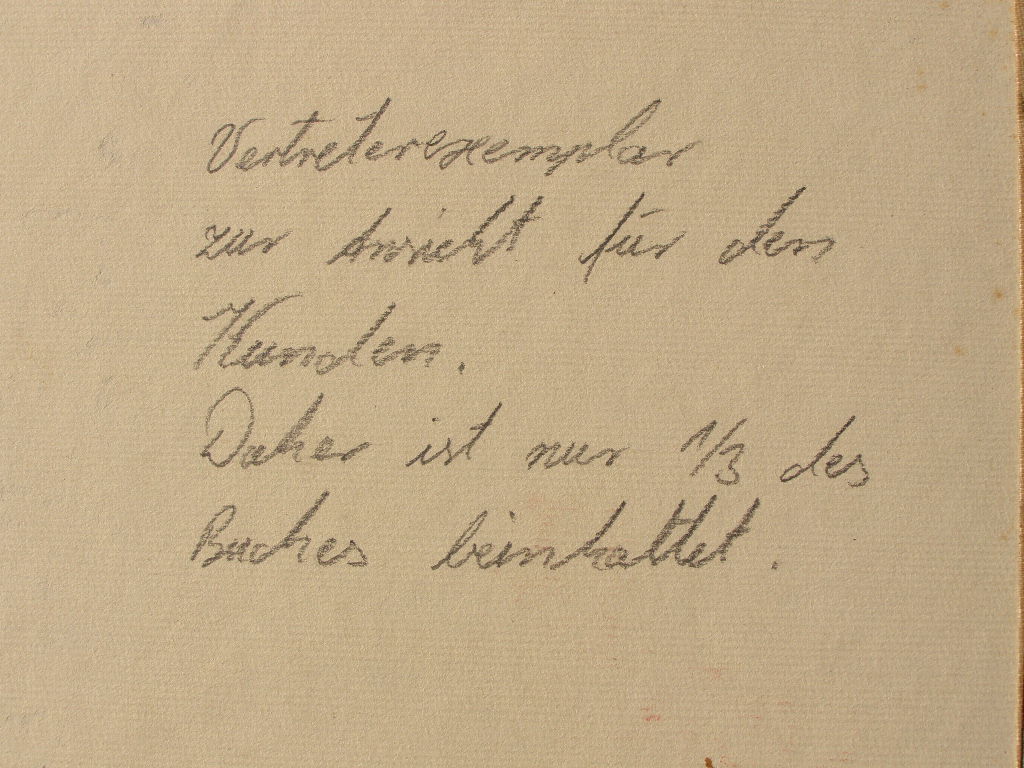 Vertreterexemplar
zur Ansicht für den
Kunden.
Daher ist nur 1/3 des
Buches beinhaltet.